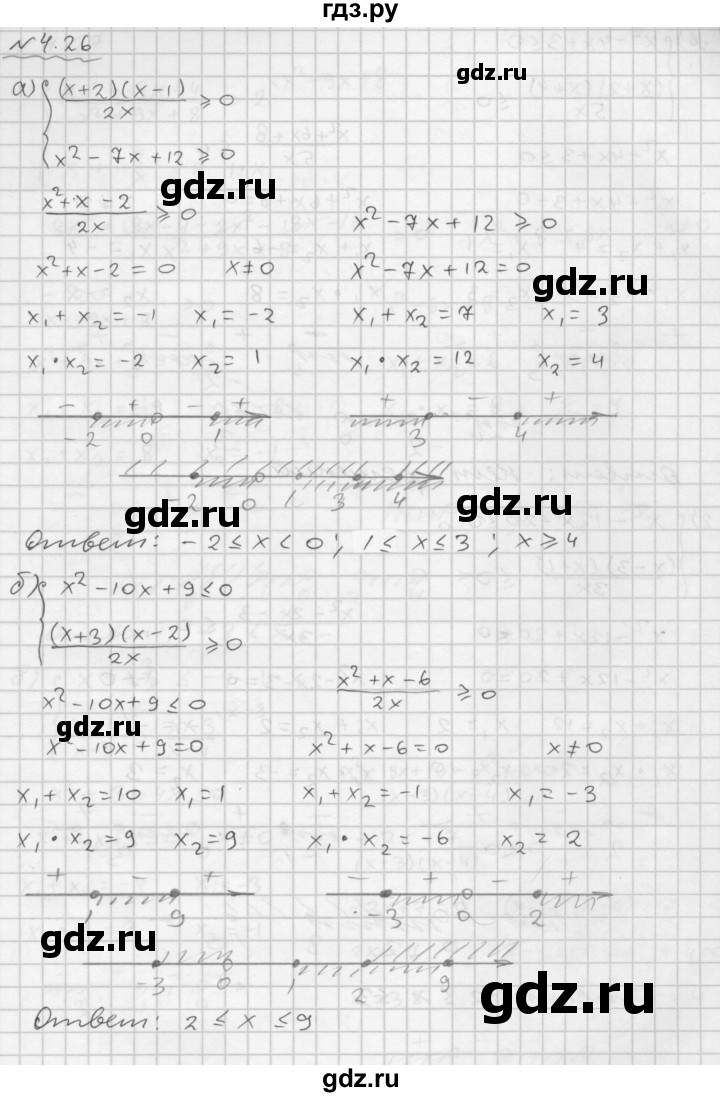 гдз.ру
№ 4.26
а) { (x+2)(x-1)/2x ⩾ 0
x² - 7x + 12 ⩾ 0
gdz.ru
(x² + x - 2)/2x ⩾ 0    x² - 7x + 12 ⩾ 0
x² + x - 2 = 0    x ≠ 0    x² - 7x + 12 = 0
gdz.ru
x₁ + x₂ = -1    x₁ = -2    x₁ + x₂ = 7    x₁ = 3
x₁ · x₂ = -2    x₂ = 1    x₁ · x₂ = 12    x₂ = 4
- + - +    + - +
-2 0 1    3 4
-2 0 1 3 4
gdz.ru gdz.ru
Ответ: -2 ≤ x < 0; 1 ≤ x ≤ 3; x ⩾ 4
б) { x² - 10x + 9 ≤ 0
(x+3)(x-2)/2x ⩾ 0
x² - 10x + 9 ≤ 0    (x² + x - 6)/2x ⩾ 0
gdz.ru
x² - 10x + 9 = 0    x² + x - 6 = 0    x ≠ 0
x₁ + x₂ = 10    x₁ = 1    x₁ + x₂ = -1    x₁ = -3
x₁ · x₂ = 9    x₂ = 9    x₁ · x₂ = -6    x₂ = 2
+ - +    - + - +
1 9    -3 0 2
gdz.ru
-3 0 1 2 9
gdz.ru
Ответ: 2 ≤ x ≤ 9
gdz.ru